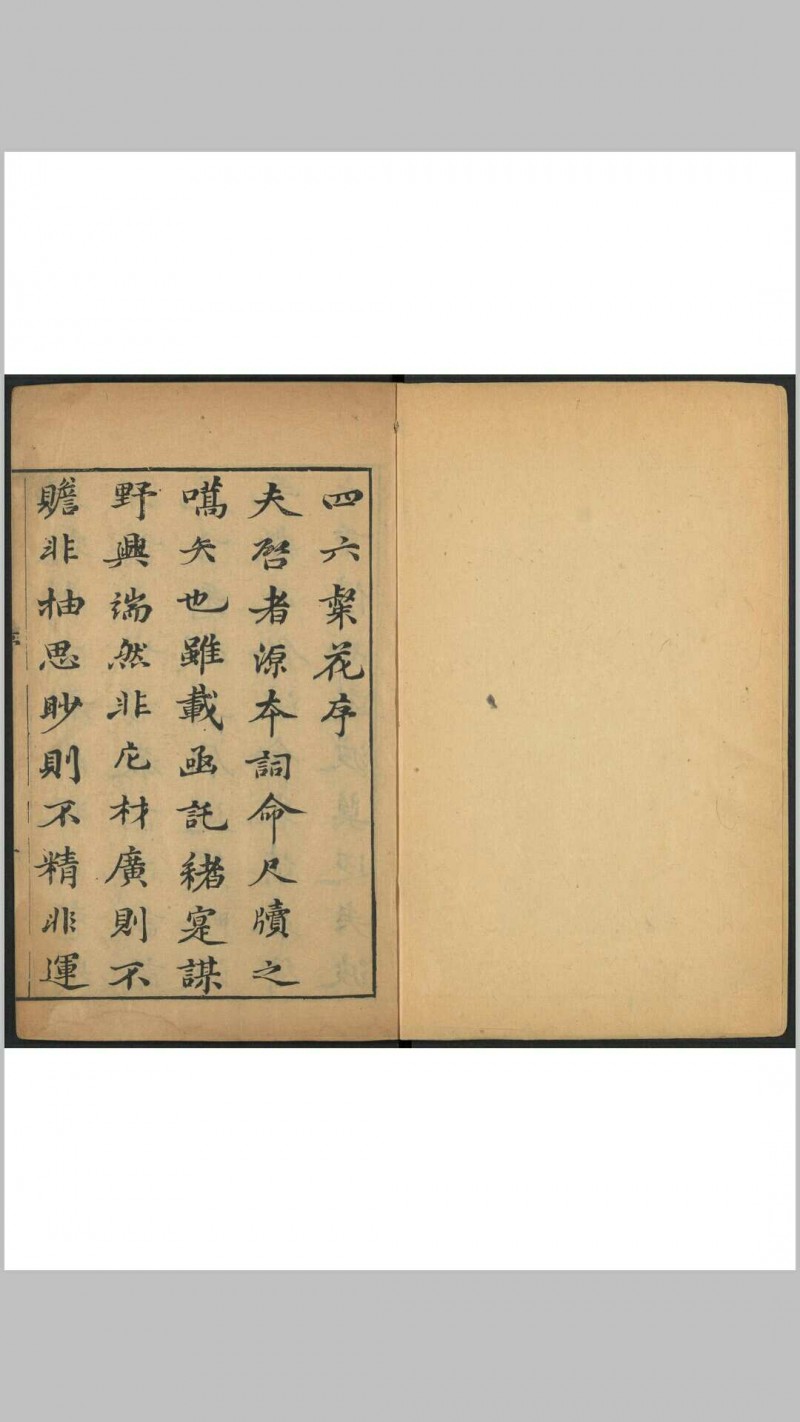 四六粲花序
夫啓者源本詞命尺牘之
嚆矢也雖載函託緒寔謀
野興端然非庀材廣則不
贍非柚思眇則不精非運